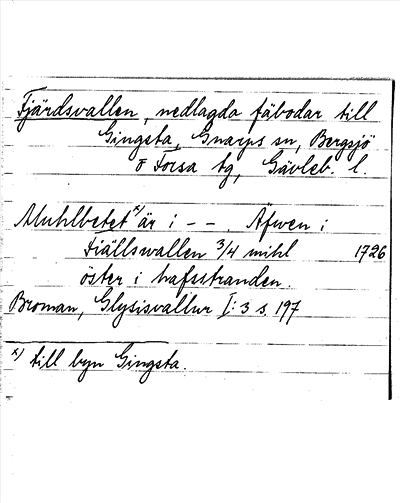 Fjärdsvallen, nedlagda fäbodar till
Gingsta, Gnarps sn, Bergsjö
o Forsa tg, Gävleb. l.
Muhlbetet x) är i - - . Äfwen i
Fiällswallen 3/4 mihl 1726
öster i hafsstranden.
Broman, Glysisvallur I: 3 s. 197
x) till byn Gingsta.